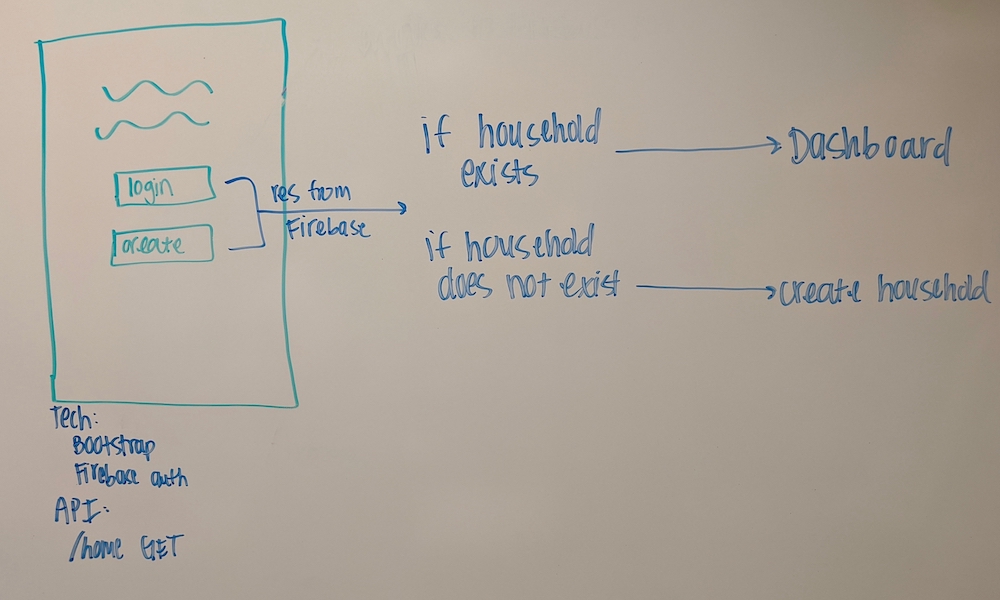 login
create
res from
Firebase
if household
exists
Dashboard
if household
does not exist
create household
Tech:
Bootstrap
Firebase auth
API:
/home GET